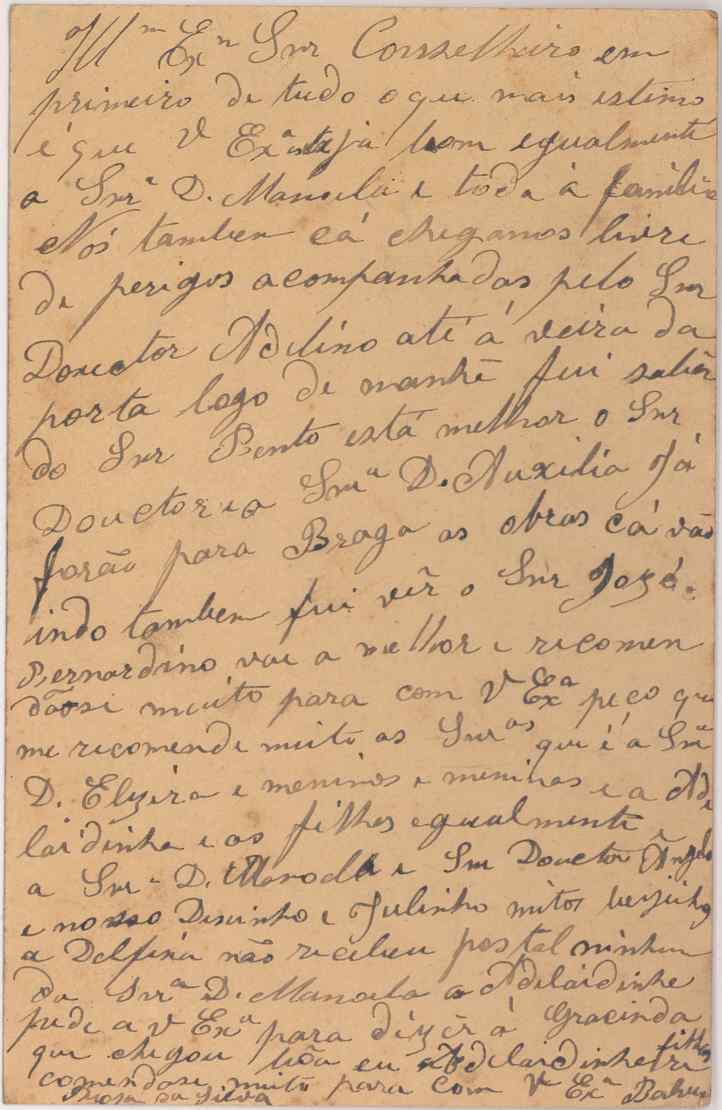 Illmo Exmo Snr Consselheiro em
primeiro de tudo o que mais estimo
é que V Exa steja bom egualmente
a Snra D. Manoela e toda á familia
Nós tambem cá chegamos livre
de perigos acompanhadas pelo Snr
Douctor Adelino até á veira da
porta logo de manhê fui saber
do Snr Bento está melhor o Snr
Douctor e a Snra D. Auxilia Já
forão para Braga as obras cá vão
indo tambem fui vêr o Snr José.
Bernardino vai a melhor e recomen
dãose muito para com V Exa peço que
me recomende muito as Snras que é a Snra
D. Elzira e meninos e meninas e a Ade
laidinha e aos filhos egualmente
a Snra D. Manoela e Snr Douctor Angelo
e nosso e Julinho mitos beijinhos
a Delfina não recebeu postal ninhum
da Snra D. Manoela a Adelaidinha
pede a V Exa para dizêr á Gracinda
que chegou bôa eu Adelaidinha e filhos re
comendase muito para com V Exa
Rosa da Silva